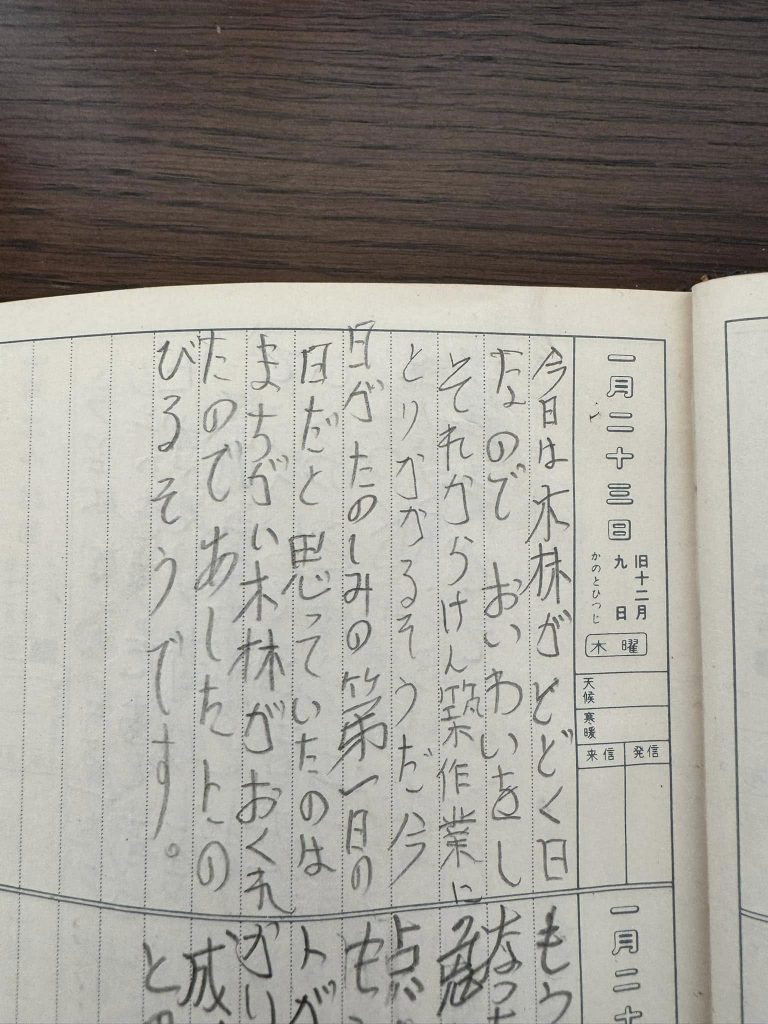 一月二十三日
旧十二月
九日
かのとひつじ
木曜
天候
寒暖
発信
来信
今日は木林がとどく日
なので おいわいをし
それからけん築作業に
とりかかるそうだ今
日がたのしみの第一日の
日だと思っていたのは
まちがい木林がおくれ
たのであしたにの
びるそうです。
一月二十
もう
なっ
点が
も
トが
かい
成
と